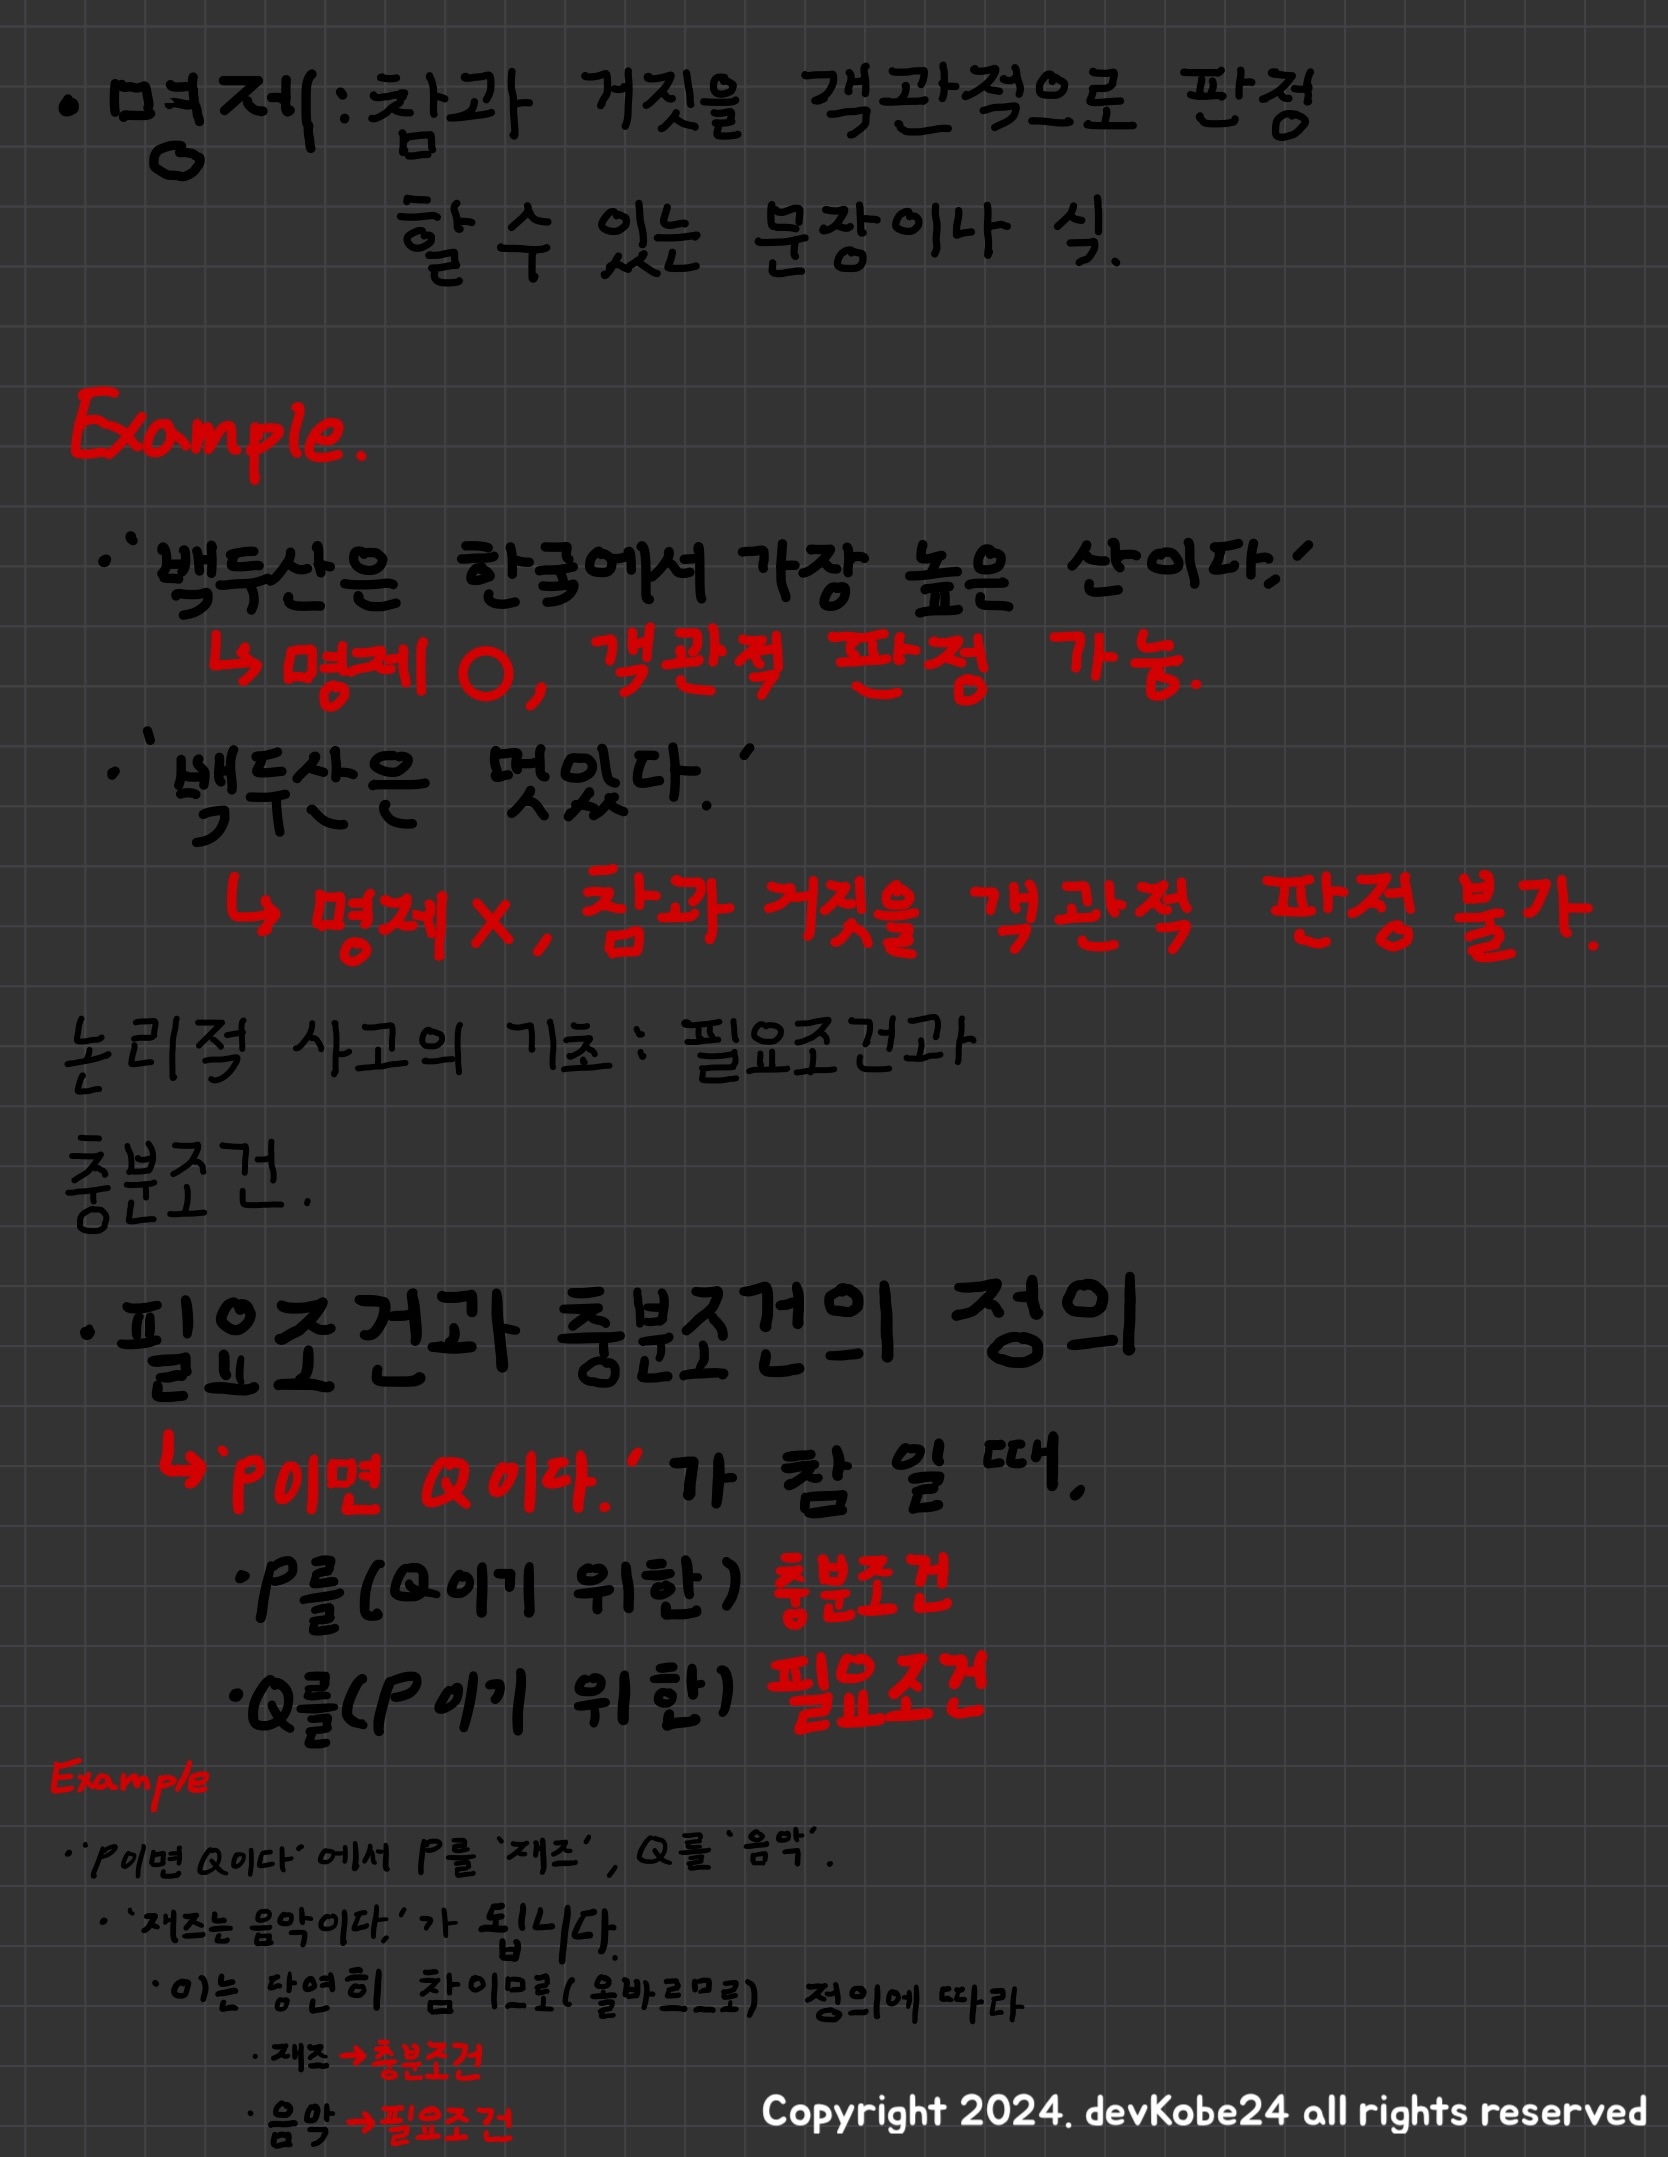 • 명제 : 참과 거짓을 객관적으로 판정
할 수 있는 문장이나 식.
Example.
• '백두산은 한국에서 가장 높은 산이다.'
↳ 명제 O, 객관적 판정 가능.
• '백두산은 멋있다.'
↳ 명제 X, 참과 거짓을 객관적 판정 불가.
논리적 사고의 기초 : 필요조건과
충분조건.
• 필요조건과 충분조건의 정의
↳ 'P이면 Q이다.'가 참 일 때,
• P를(Q이기 위한) 충분조건
• Q를(P이기 위한) 필요조건
Example
• 'P이면 Q이다'에서 P를 '재즈', Q를 '음악'.
• '재즈는 음악이다.'가 됩니다.
• 이는 당연히 참이므로(올바르므로) 정의에 따라
• 재즈 → 충분조건
• 음악 → 필요조건
Copyright 2024. devKobe24 all rights reserved